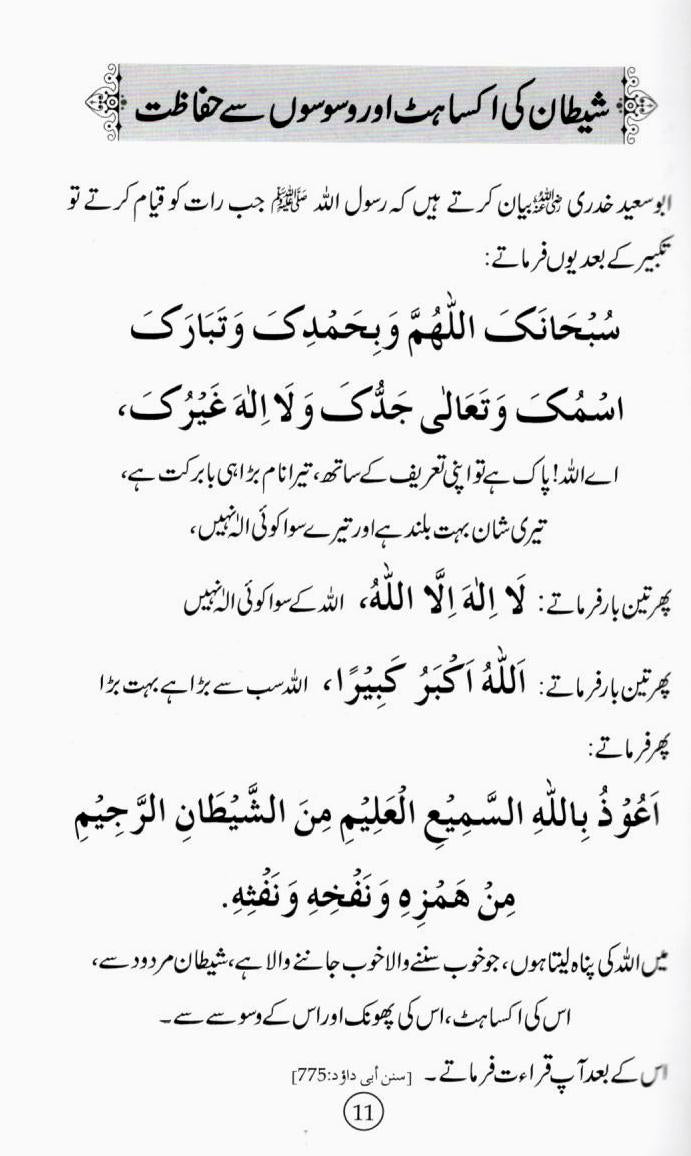 شیطان کی اکساہٹ اور وسوسوں سے حفاظت
ابو سعید خدری رضی اللہ عنہ بیان کرتے ہیں کہ رسول اللہ ﷺ جب رات کو قیام کرتے تو
تکبیر کے بعد یوں فرماتے:
سُبْحَانَکَ اللّٰهُمَّ وَبِحَمْدِکَ وَتَبَارَکَ
اسْمُکَ وَتَعَالٰی جَدُّکَ وَلَا اِلٰهَ غَیْرُکَ،
اے اللہ! پاک ہے تو اپنی تعریف کے ساتھ، تیرا نام بڑا ہی بابرکت ہے،
تیری شان بہت بلند ہے اور تیرے سوا کوئی الٰہ نہیں،
پھر تین بار فرماتے: لَا اِلٰهَ اِلَّا اللّٰهُ، اللہ کے سوا کوئی الٰہ نہیں
پھر تین بار فرماتے: اَللّٰهُ اَکْبَرُ کَبِیْرًا، اللہ سب سے بڑا ہے بہت بڑا
پھر فرماتے:
اَعُوْذُ بِاللّٰهِ السَّمِیْعِ الْعَلِیْمِ مِنَ الشَّیْطَانِ الرَّجِیْمِ
مِنْ هَمْزِهِ وَنَفْخِهِ وَنَفْثِهِ.
میں اللہ کی پناہ لیتا ہوں، جو خوب سننے والا خوب جاننے والا ہے، شیطان مردود سے،
اس کی اکساہٹ، اس کی پھونک اور اس کے وسوسے سے۔
اس کے بعد آپ قراءت فرماتے۔ [سنن أبی داؤد:775]
11